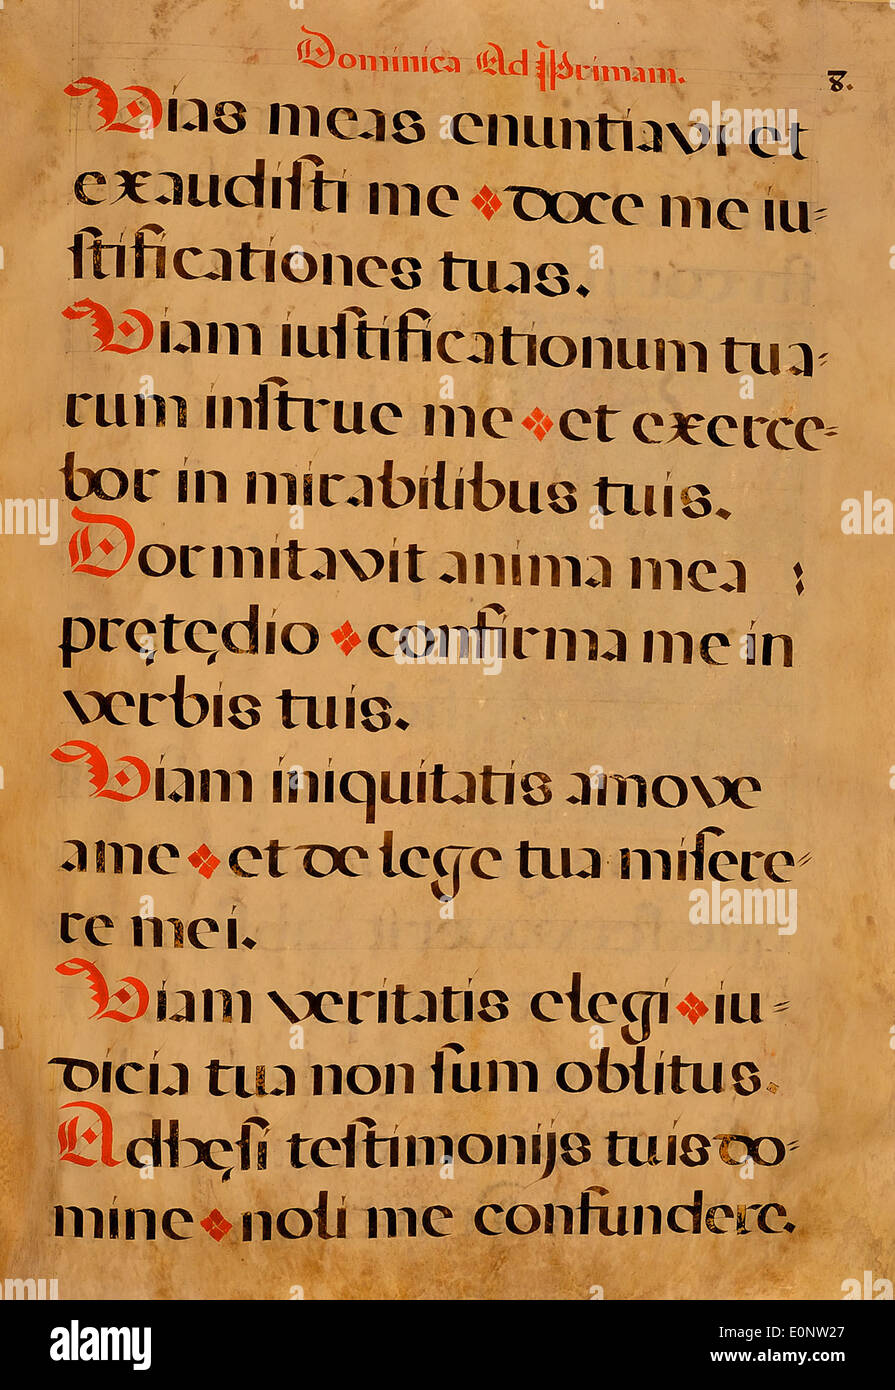 Dominica Ad Primam.
8.
Vias meas enuntiavi et
exaudiſti me ❖ doce me iu=
ſtificationes tuas.
Viam iuſtificationum tua=
rum inſtrue me ❖ et exerce=
bor in mirabilibus tuis.
Dormitavit anima mea :
prętędio ❖ confirma me in
verbis tuis.
Viam iniquitatis amove
ame ❖ et de lege tua miſere=
re mei.
Viam veritatis elegi ❖ iu=
dicia tua non ſum oblitus.
Adhęſi teſtimonijs tuis do=
mine ❖ noli me confundere.
alamy
Image ID: E0NW27
www.alamy.com